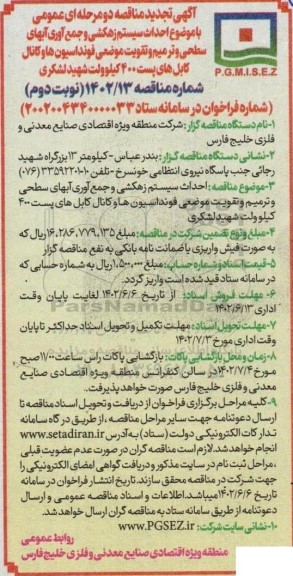 P.G.M.I.S.E.Z
آگهی تجدید مناقصه دو مرحله ای عمومی
با موضوع احداث سیستم زهکشی و جمع آوری آبهای
سطحی و ترمیم و تقویت موضعی فونداسیون ها و کانال
کابل های پست ۴۰۰ کیلوولت شهید لشگری
شماره مناقصه ۱۴۰۲/۱۳ (نوبت دوم)
(شماره فراخوان در سامانه ستاد ۲۰۰۲۰۰۴۳۴۰۰۰۰۰۳۳)
۱-نام دستگاه مناقصه گزار: شرکت منطقه ویژه اقتصادی صنایع معدنی و
فلزی خلیج فارس
۲-نشانی دستگاه مناقصه گزار: بندرعباس-کیلومتر ۱۳ بزرگراه شهید
رجائی جنب پاسگاه نیروی انتظامی خونسرخ -تلفن ۱۰-۳۳۵۹۲۲۰۱ (۰۷۶)
۳-موضوع مناقصه: احداث سیستم زهکشی و جمع آوری آبهای سطحی
و ترمیم و تقویت موضعی فونداسیون ها و کانال کابل های پست ۴۰۰
کیلو ولت شهید لشگری
۴-مبلغ و نوع تضمین شرکت در مناقصه: مبلغ ۱۶,۲۸۶,۷۷۹,۱۳۵ ریال که
به صورت فیش واریزی یا ضمانت نامه بانکی به نفع مناقصه گزار
۵-قیمت اسناد و شماره حساب: مبلغ ۱,۵۰۰,۰۰۰ ریال به شماره حسابی که
در سامانه ستاد قید شده است واریز گردد.
۶- مهلت فروش اسناد: از تاریخ ۱۴۰۲/۶/۶ لغایت پایان وقت
اداری ۱۴۰۲/۶/۱۳
۷-مهلت تحویل اسناد: مهلت تکمیل و تحویل اسناد حداکثر تا پایان
وقت اداری مورخ ۱۴۰۲/۷/۳
۸-زمان و محل بازگشایی پاکات: بازگشایی پاکات راس ساعت ۱۱/۰۰ صبح
مورخ ۱۴۰۲/۷/۴ در سالن کنفرانس منطقه ویژه اقتصادی صنایع
معدنی و فلزی خلیج فارس صورت خواهد پذیرفت.
۹-کلیه مراحل برگزاری فراخوان از دریافت و تحویل اسناد مناقصه تا
ارسال دعوتنامه جهت سایر مراحل مناقصه، از طریق درگاه سامانه
تدارکات الکترونیکی دولت (ستاد) به آدرس www.setadiran.ir
انجام خواهد شد. لازم است مناقصه گران در صورت عدم عضویت قبلی
، مراحل ثبت نام در سایت مذکور و دریافت گواهی امضای الکترونیکی را
جهت شرکت در مناقصه محقق سازند. تاریخ انتشار فراخوان در سامانه
تاریخ ۱۴۰۲/۶/۶ میباشد. اطلاعات و اسناد مناقصه عمومی و ارسال
دعوتنامه از طریق سامانه ستاد به مناقصه گران ارسال خواهد شد.
۱۰-نشانی سایت شرکت: www.PGSEZ.ir
روابط عمومی
منطقه ویژه اقتصادی صنایع معدنی و فلزی خلیج فارس